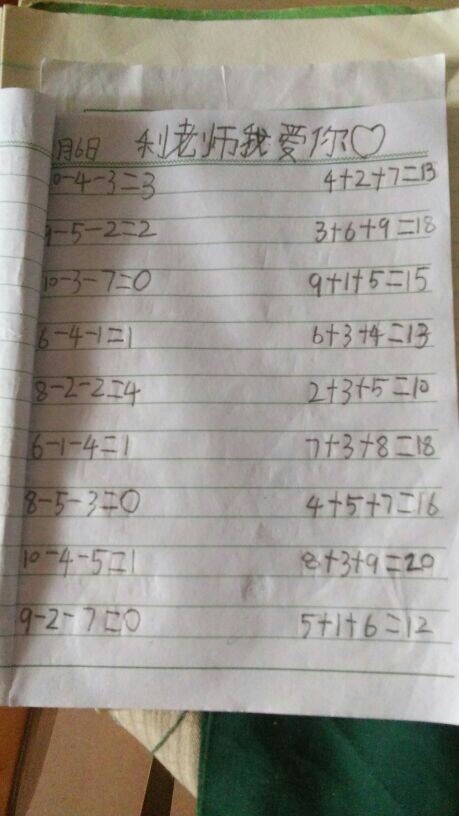 月6日 利老师我爱你♡
10-4-3=3 4+2+7=13
9-5-2=2 3+6+9=18
10-3-7=0 9+1+5=15
6-4-1=1 6+3+4=13
8-2-2=4 2+3+5=10
6-1-4=1 7+3+8=18
8-5-3=0 4+5+7=16
10-4-5=1 8+3+9=20
9-2-7=0 5+1+6=12